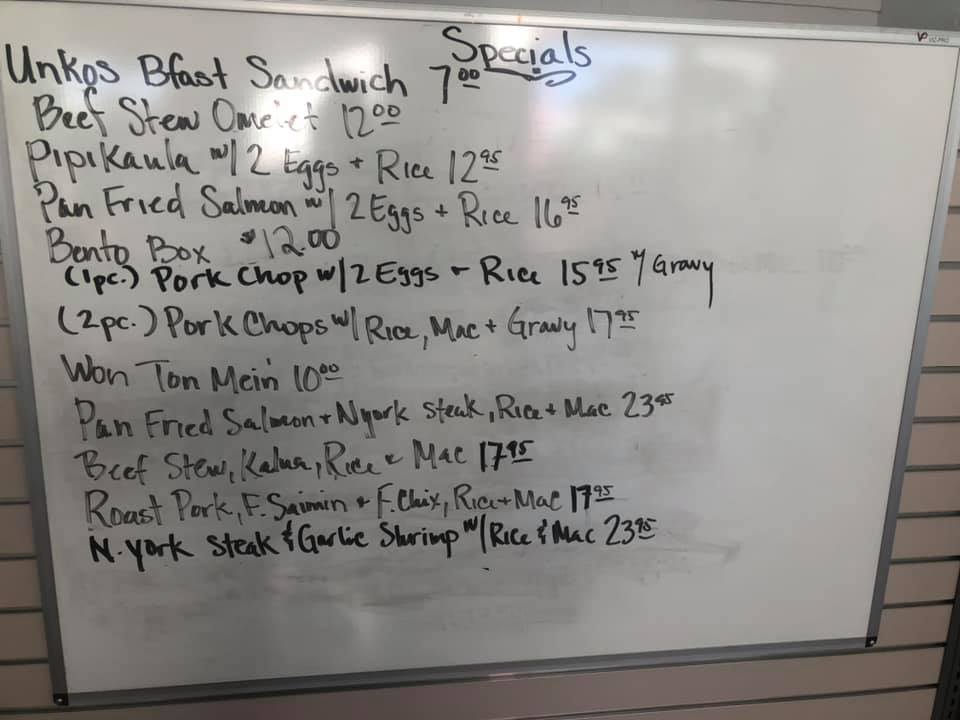 Specials
Unkos Bfast Sandwich 7.00
Beef Stew Omelet 12.00
Pipikaula w/ 2 Eggs + Rice 12.95
Pan Fried Salmon w/ 2 Eggs + Rice 16.95
Bento Box $12.00
(1pc.) Pork Chop w/ 2 Eggs + Rice 15.95 w/ Gravy
(2pc.) Pork Chops w/ Rice, Mac + Gravy 17.95
Won Ton Mein 10.00
Pan Fried Salmon + N.york steak, Rice + Mac 23.95
Beef Stew, Kalua, Rice + Mac 17.95
Roast Pork, F. Saimin + F. Chix, Rice + Mac 17.95
N. york Steak & Garlic Shrimp w/ Rice & Mac 23.95
VIZ-PRO